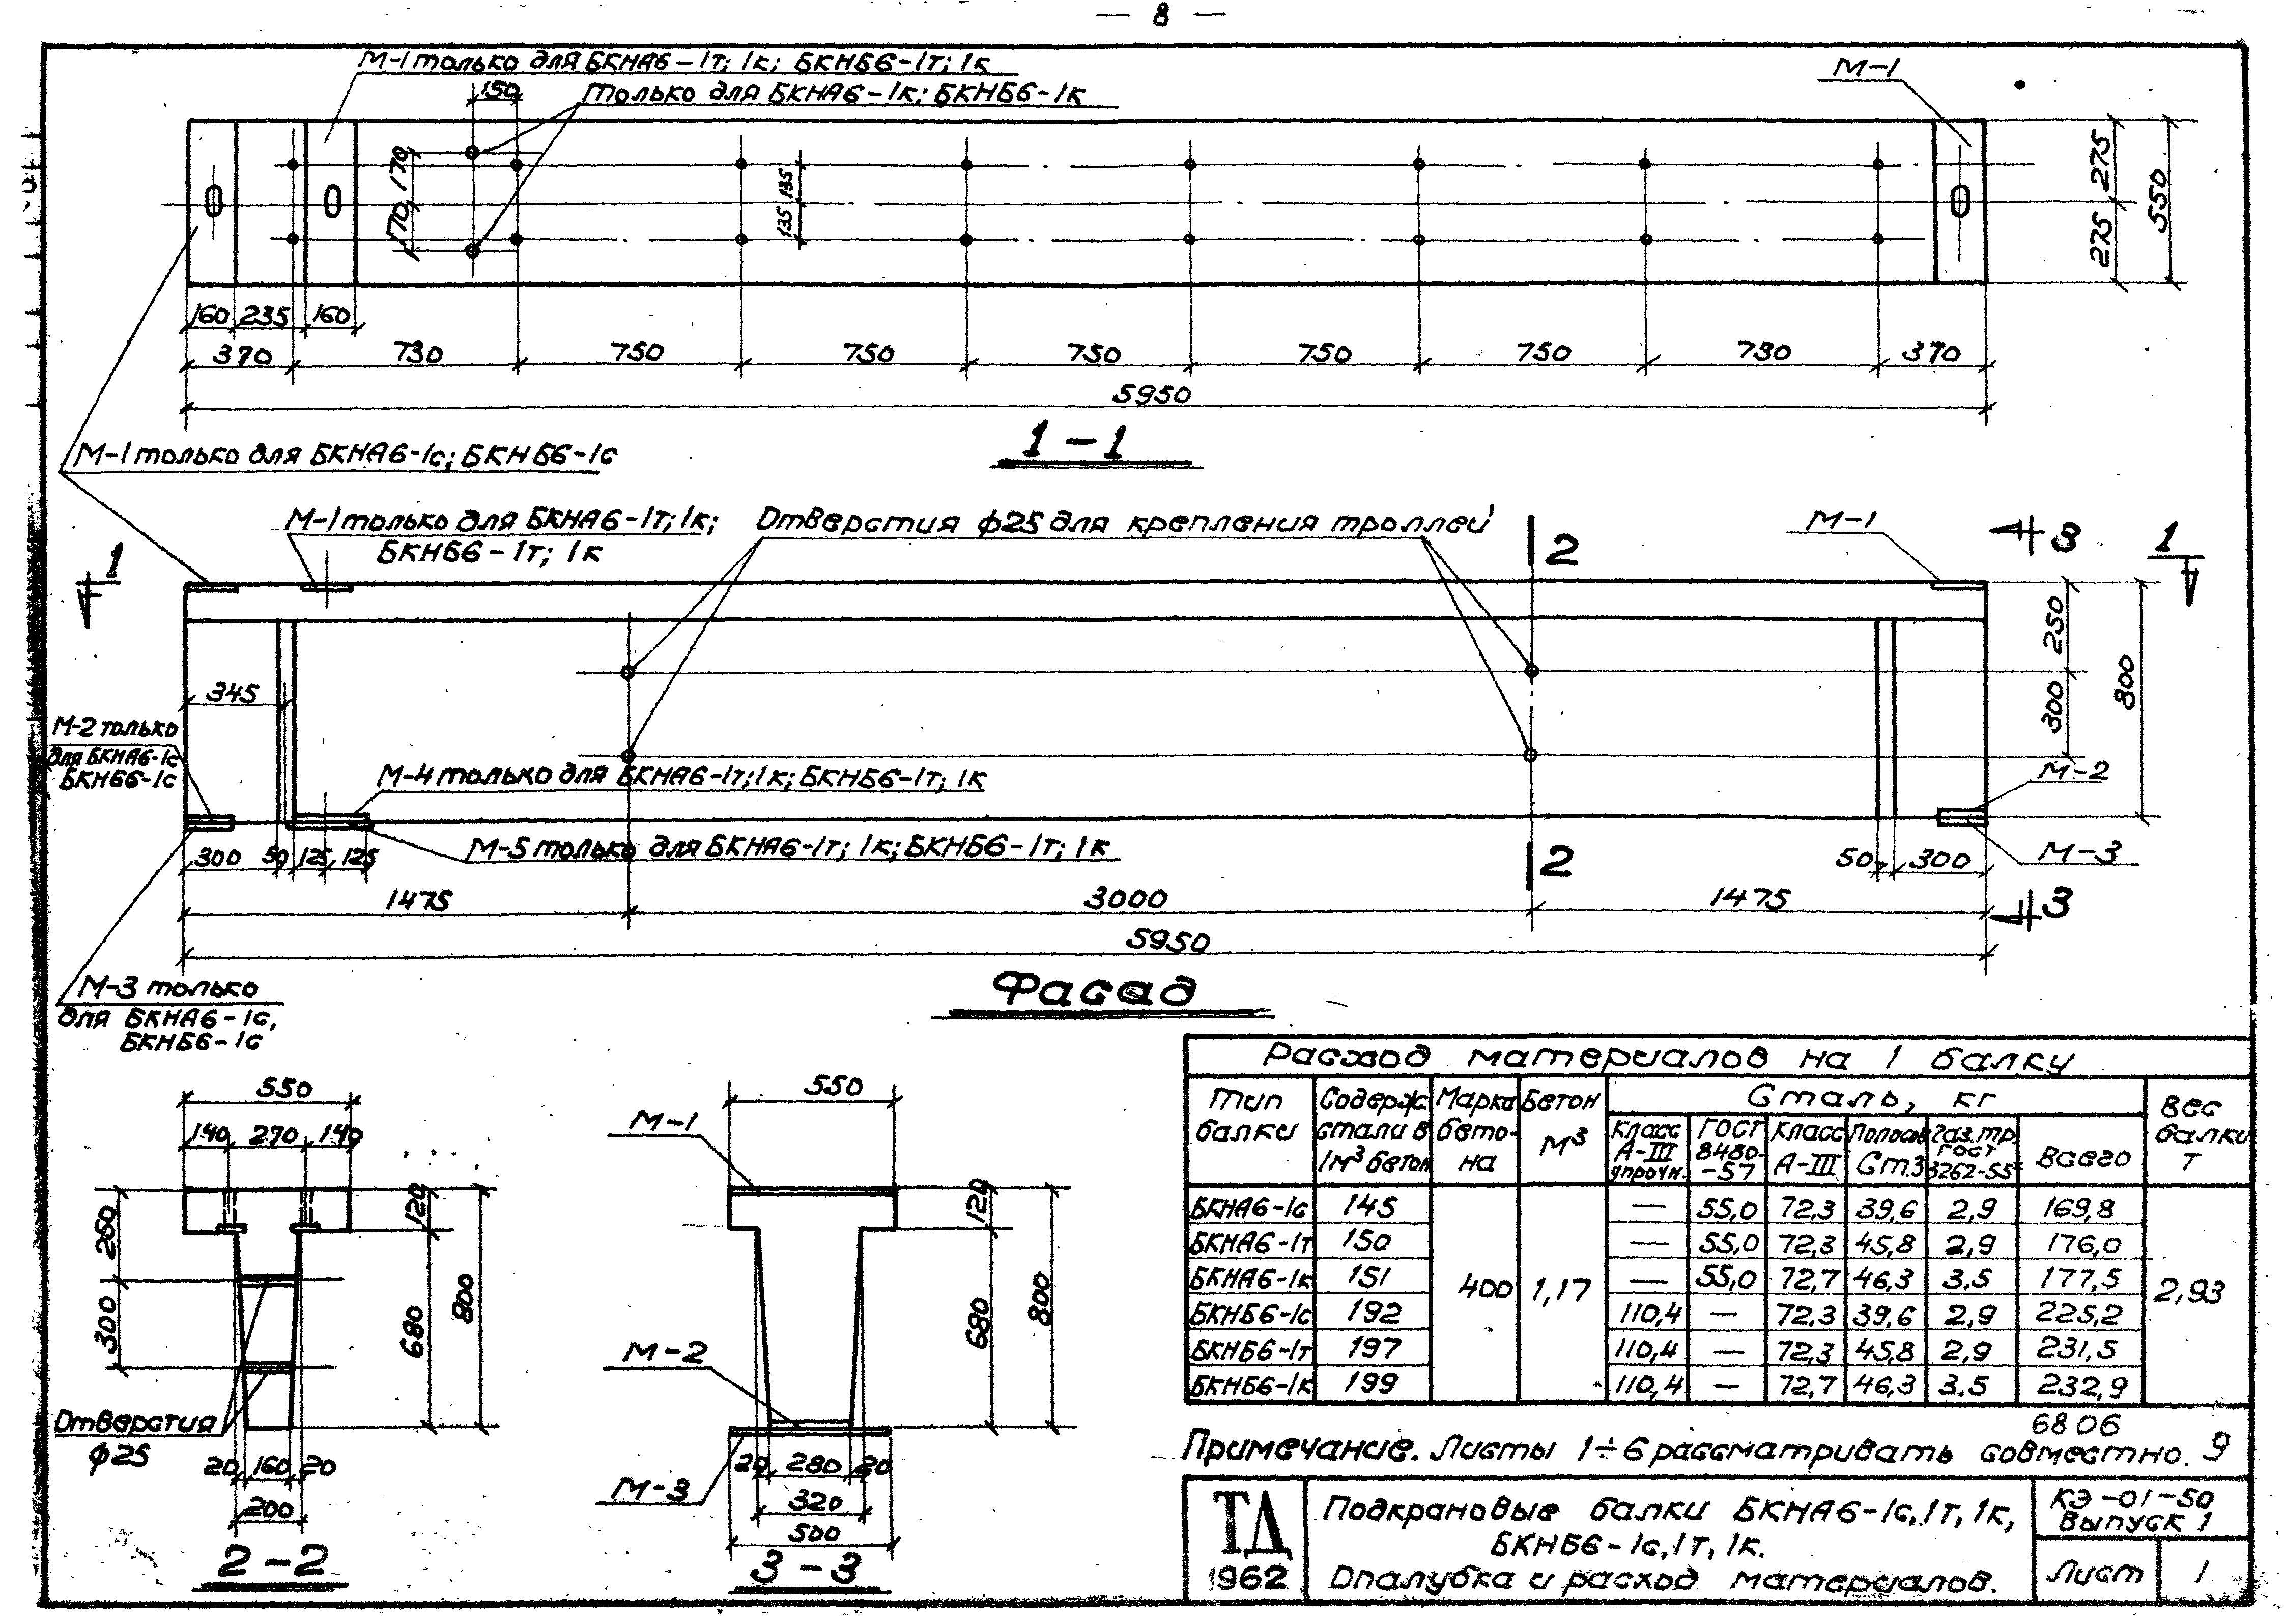 — 8 —
М-1 только для БКНА6-1т; 1к; БКНБ6-1т; 1к
Только для БКНА6-1к; БКНБ6-1к
М-1
150
170
170
135
135
275
275
550
160 235 160
370 730 750 750 750 750 750 730 370
5950
1-1
М-1 только для БКНА6-1с; БКНБ6-1с
М-1 только для БКНА6-1т; 1к;
БКНБ6-1т; 1к
Отверстия ф25 для крепления троллей
М-1
2
3
1
1
250
300
800
345
М-2 только
для БКНА6-1с
БКНБ6-1с
М-4 только для БКНА6-1т; 1к; БКНБ6-1т; 1к
М-2
М-5 только для БКНА6-1т; 1к; БКНБ6-1т; 1к
М-3
300 50 125 125
2
50 300
1475 3000 1475
3
5950
Фасад
М-3 только
для БКНА6-1с,
БКНБ6-1с
550
140 270 140
250
300
120
680
800
Отверстия
ф25
20 160 20
200
2-2
550
М-1
120
680
800
М-2
М-3
20 280 20
320
500
3-3
Расход материалов на 1 балку
Тип балки
Содерж. стали в 1м³ бетон
Марка бето-на
Бетон м³
Сталь, кг
Вес балки т
Класс А-III упрочн.
ГОСТ 8480-57
Класс А-III
Полосов Ст.3
Газ.тр. ГОСТ 3262-55
Всего
БКНА6-1с 145 — 55,0 72,3 39,6 2,9 169,8
БКНА6-1т 150 — 55,0 72,3 45,8 2,9 176,0
БКНА6-1к 151 400 1,17 — 55,0 72,7 46,3 3,5 177,5 2,93
БКНБ6-1с 192 110,4 — 72,3 39,6 2,9 225,2
БКНБ6-1т 197 110,4 — 72,3 45,8 2,9 231,5
БКНБ6-1к 199 110,4 — 72,7 46,3 3.5 232,9
6806
Примечание. Листы 1÷6 рассматривать совместно. 9
ТД
1962
Подкрановые балки БКНА6-1с,1т,1к,
БКНБ6-1с,1т,1к.
Опалубка и расход материалов.
КЭ-01-50
Выпуск 1
Лист 1